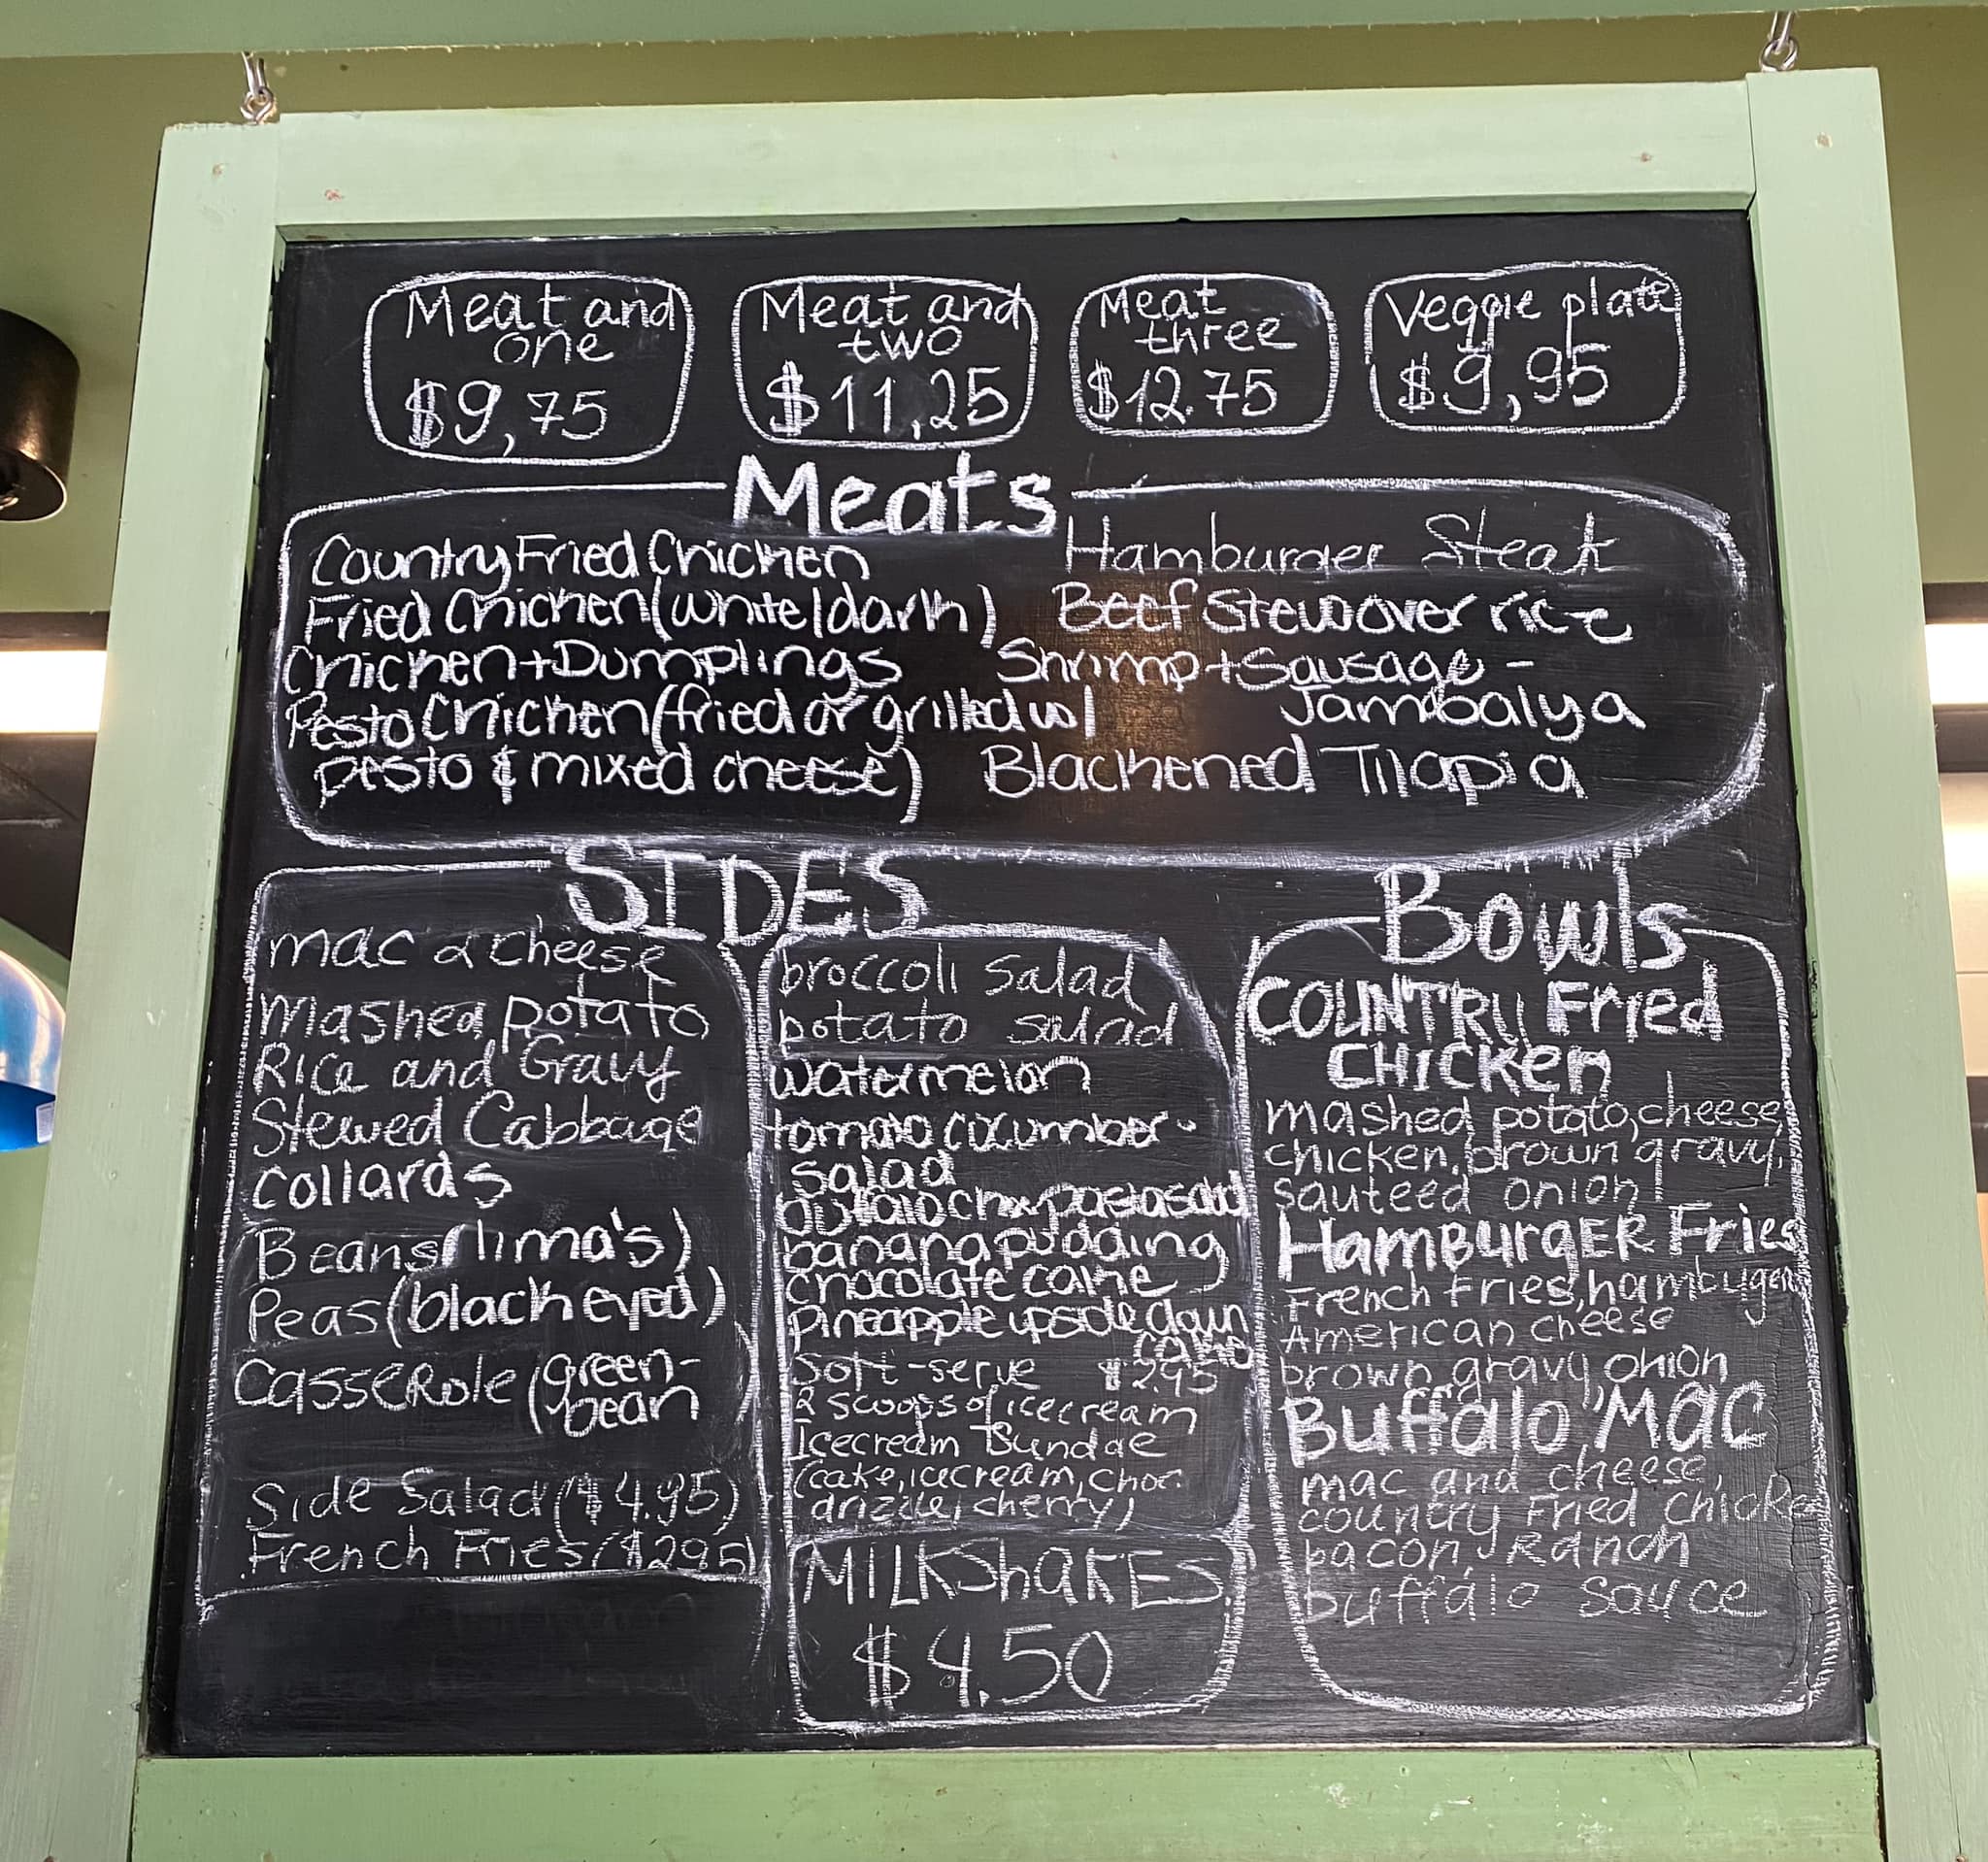 Meat and
one
$9,75
Meat and
two
$11,25
Meat
three
$12.75
Veggie plate
$9,95
Meats
Country Fried Chicken
Fried Chicken (white/dark)
Chicken + Dumplings
Pesto Chicken (fried or grilled w/
pesto & mixed cheese)
Hamburger Steak
Beef Stew over rice
Shrimp + Sausage -
Jambalya
Blackened Tilapia
SIDES
mac & cheese
Mashed potato
Rice and Gravy
Stewed Cabbage
Collards
Beans (lima's)
Peas (black eyed)
Casserole (green-
bean
Side Salad ($4.95)
French Fries ($2.95)
broccoli Salad
potato salad
watermelon
tomato cucumber -
salad
buffalo chx pasta salad
banana pudding
chocolate cake
Pineapple upside down
cake
Soft-serve $2.95
2 scoops of icecream
Icecream Sundae
(cake, icecream, choc.
drizzle, cherry)
MILKShakES
$4.50
Bowls
COUNTRY Fried
CHICKen
mashed potato, cheese,
chicken, brown gravy,
sauteed onion
HamBurgER Fries
French Fries, hamburger
American cheese
brown gravy, onion
Buffalo Mac
mac and cheese,
country Fried Chicken
bacon, Ranch
buffalo sauce